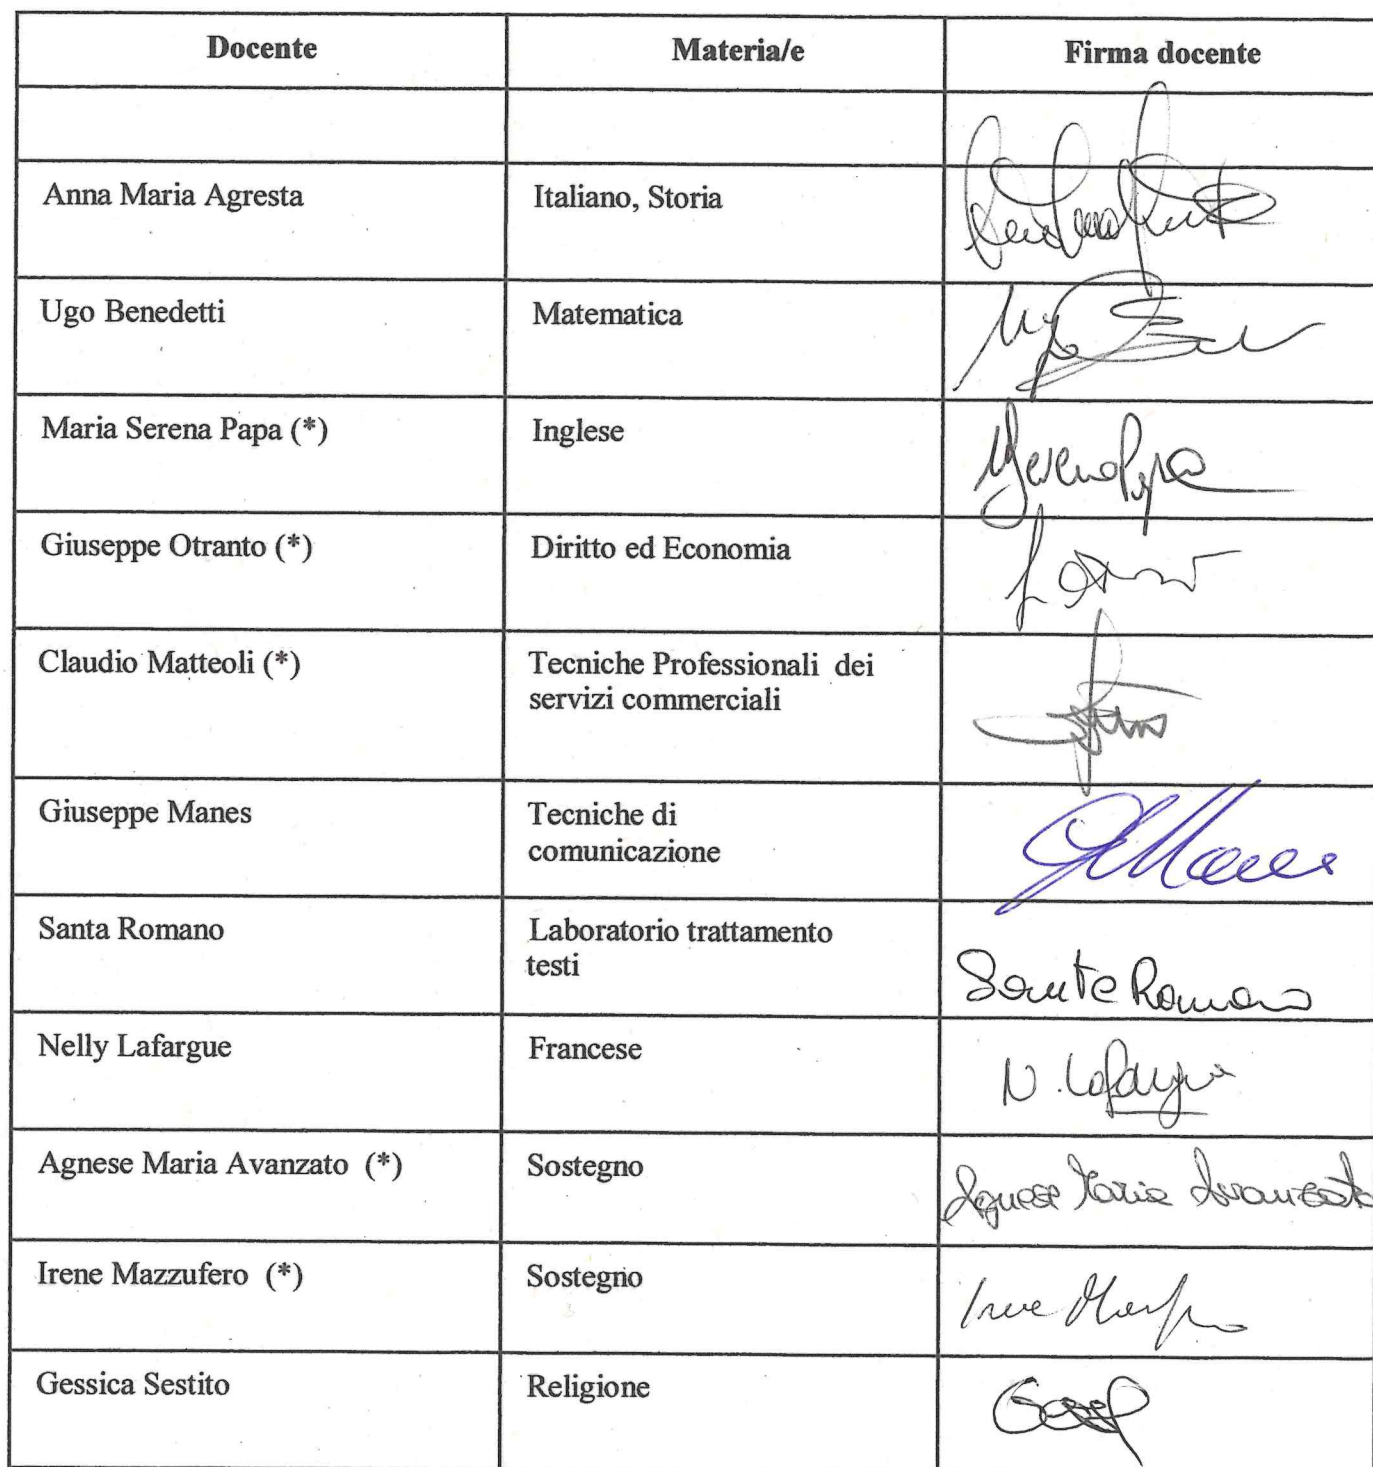 Docente Materia/e Firma docente
Anna Maria Agresta Italiano, Storia
Ugo Benedetti Matematica
Maria Serena Papa (*) Inglese
Giuseppe Otranto (*) Diritto ed Economia
Claudio Matteoli (*) Tecniche Professionali dei
servizi commerciali
Giuseppe Manes Tecniche di
comunicazione
Santa Romano Laboratorio trattamento
testi
Santa Romano
Nelly Lafargue Francese
N. Lafargue
Agnese Maria Avanzato (*) Sostegno
Agnese Maria Avanzato
Irene Mazzufero (*) Sostegno
Gessica Sestito Religione